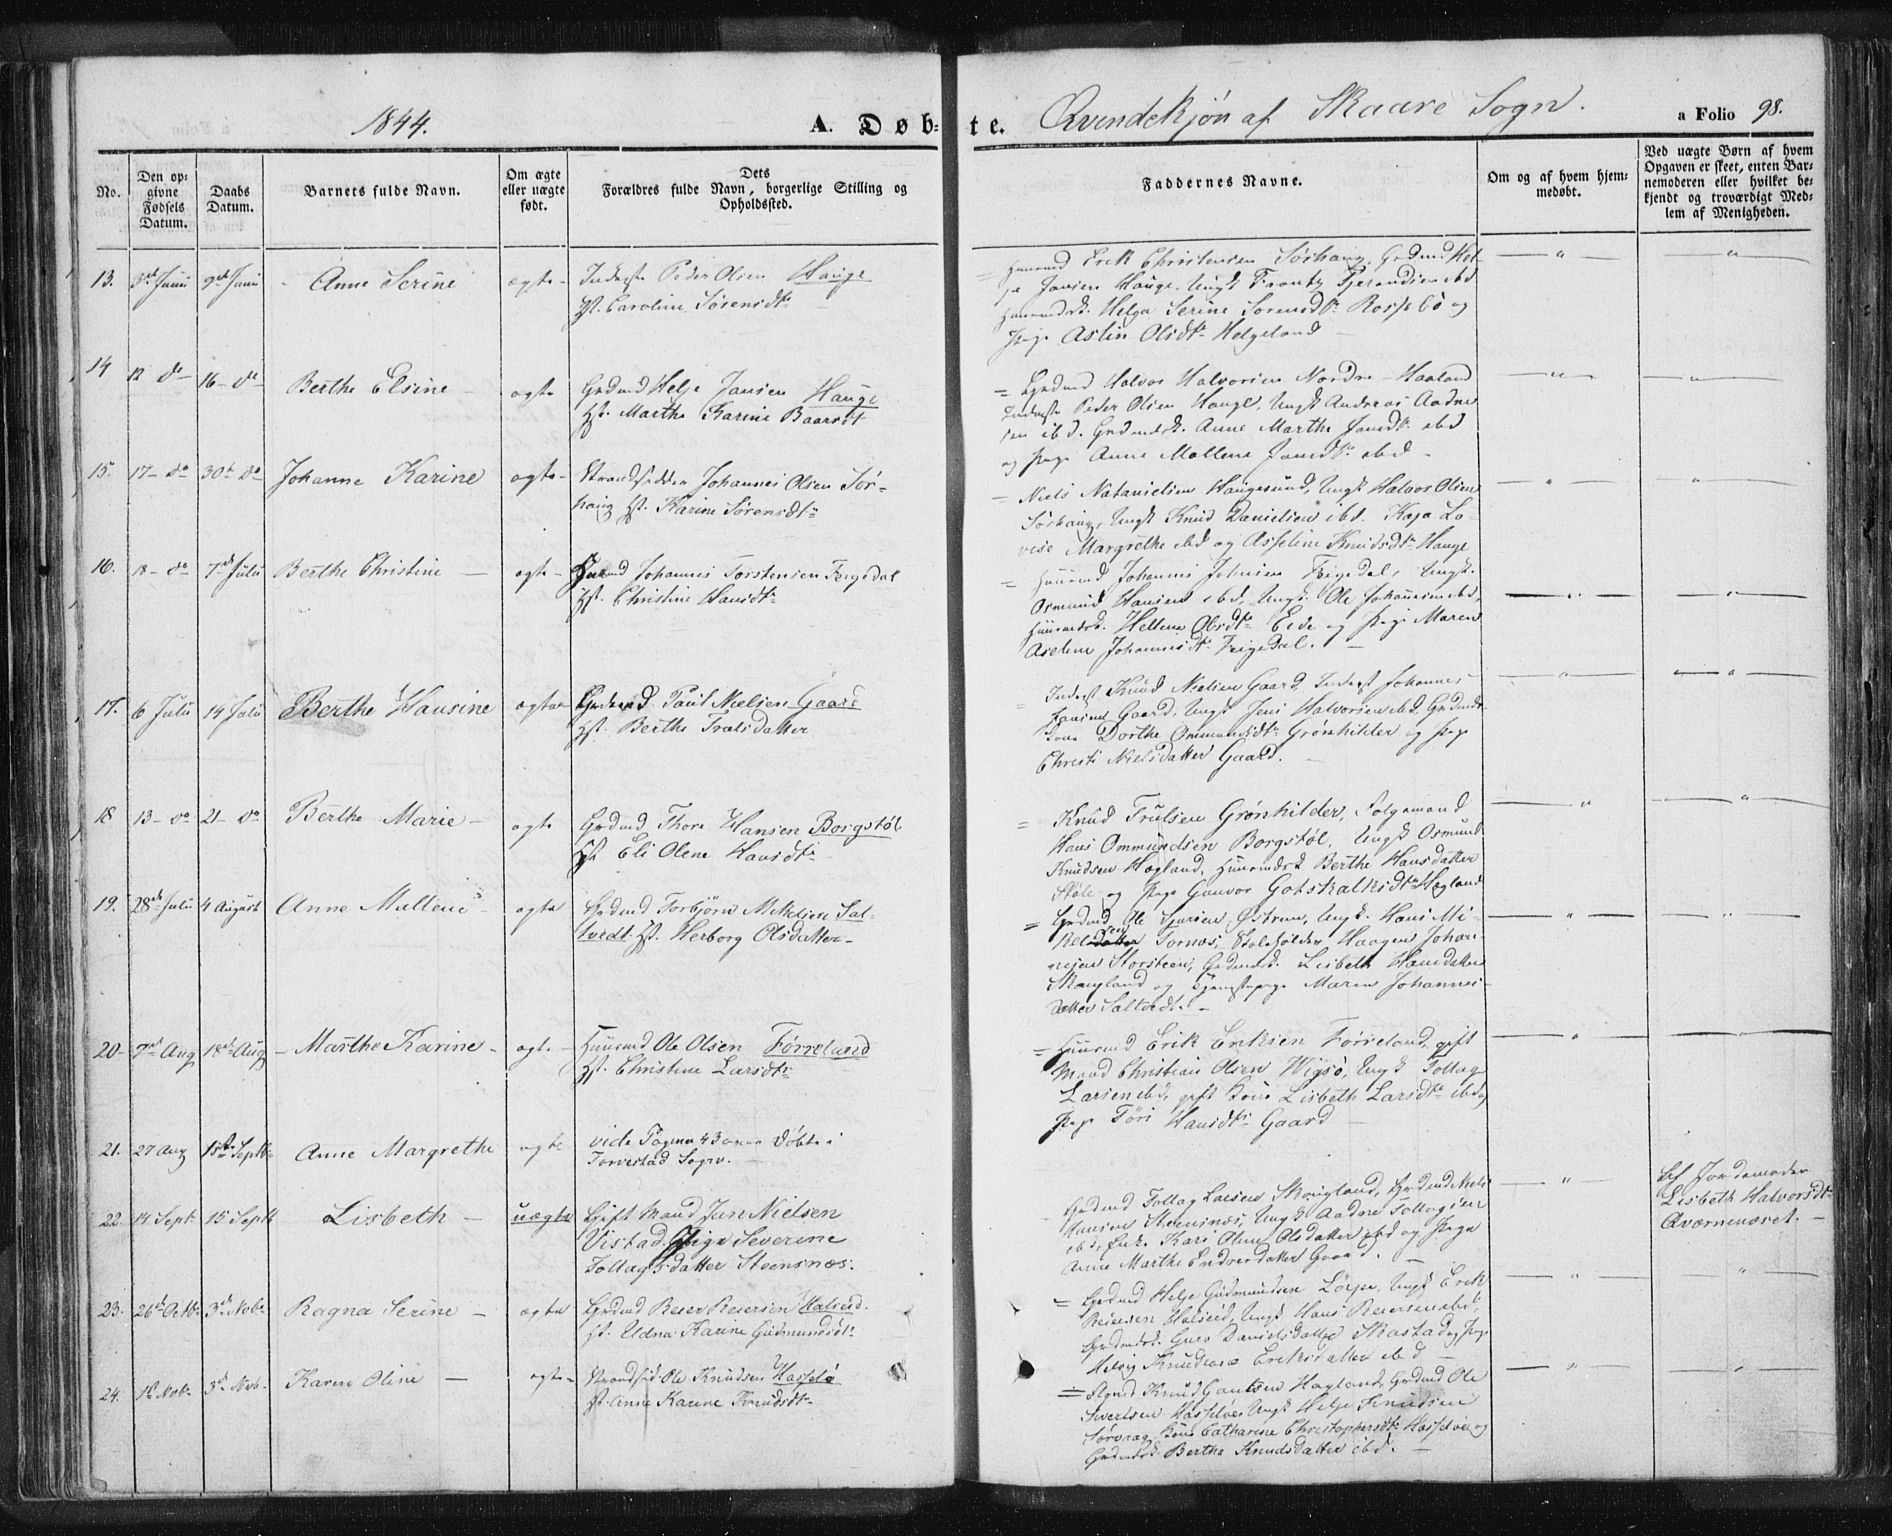 1844.
A. Døb=
te.
Qvindekjøn af Skaare Sogn.
a Folio 98.
No.
Den op=
givne
Fødsels
Datum.
Daabs
Datum.
Barnets fulde Navn.
Om ægte
eller uægte
født.
Dets
Forældres fulde Navn, borgerlige Stilling og
Opholdssted.
Faddernes Navne.
Om og af hvem hjem=
medøbt.
Ved uægte Børn af hvem
Opgaven er skeet, enten Bar=
nemoderen eller hvilket be=
kjendt og troværdigt Med=
lem af Menigheden.
13. 3d Juni 9d Juni Anne Serine ægte Inderste Peder Olsen Hauge
Hst. Caroline Sørensdtr
Huusmd Erik Christensen Sørhaug, Grdmd Hel-
je Jansen Hauge, Ungk Frantz ibd
Huusmdsk. Helga Serine Sørensdtr Rossebø og
Pige Astin Olsdtr Helgeland
14 12 do 16 do Berthe Elsine ægte Grdmd Helje Jansen Hauge
Hst. Marthe Karine Baarsdt
Grdmd Halvor Halvorsen Nordre Haaland
Inderste Peder Olsen Hauge, Ungk Andreas Aadne
sen ibd. Grdmdsk. Anne Marthe Jansdtr ibd
og Pige Anne Mallene Jansdtr ibd
15. 17 do 30te do Johanne Karine ægte Strandsidder Johannes Olsen Sør-
haug Hst. Karine Sørensdtr
Niels Natanielsen Haugesund, Ungk Halvor Olsen
Sørhaug, Ungk Knud Danielsen ibd. Kaja Lo-
vise Margrethe ibd og Asseline Knudsdtr Hauge
16. 18 do 7d Juli Berthe Christine ægte Huusmd Johannes Torstensen Feigedal
Hst. Christine Hansdtr
Huusmd Johannes Johnsen Feigedal, Ungk.
Osmund Hansen ibd, Ungk. Ole Johannesen ibd,
Huusmdsk. Hellene Olsdtr Eide og Pige Maren
Aselene Johannesdtr Feigedal.
17. 6 Juli 14 Juli Berthe Hansine ægte Grdmd Paul Nielsen Gaard
Hst. Berthe Troelsdatter
Inderst Knud Nielsen Gaard, Inderst Johannes
Hansen Gaard, Ungk Jens Halvorsen ibd, Grdmds
kone Dorthe Ommundsdtr Grønhilder og Pige
Christi Nielsdatter Gaard.
18 13 do 21 do Berthe Marie ægte Grdmd Thore Hansen Borgstøl
Hst Eli Olene Hansdtr
Knud Trulsen Grønhilder, Folgemand
Hans Ommundsen Borgstøl, Ungk Osmund
Knudsen Hagland, Huusmdsk Berthe Hansdatter
Støle og Pige Gunvor Gotskalksdtr Hagland
19. 28d Juli 4 August Anne Mallene ægte Grdmd Torbjørn Mikkelsen Sal-
tvedt. Hst. Herborg Olsdatter
Grdmd Ole Sjursen Østrem, Ungk. Hans Mi-
kelsen Tornæs, Skoleholder Haagen Johan-
nesen Storsteen, Grdmdsk. Lisbeth Hansdatter
Skeisland og Tjenestepige Maren Johannes
datter Saltvedt.
20 7de Aug 18de Aug Marthe Karine ægte Huusmd Ole Olsen Førreland
Hst. Christine Larsdtr
Huusmd Erik Eriksen Førreland, gift
Mand Christian Olsen Wigsø, Ungk Tollag
Larsen ibd, gift Kone Lisbeth Larsdtr ibd og
Pige Tøri Hansdtr Gaard
21. 27 Aug 15de Septbr Anne Margrethe ægte vide Pagina 43 over døbte i
Torvestad Sogn.
22. 14 Sept 15 Septb Lisbeth uægte Gift Mand Jan Nielsen
Vistad. Pige Severine
Tollagsdatter Steensnæs.
Grdmd Tollag Larsen Skeisland, Grdmd Niels
Hansen Steensnæs, Ungk Aadne Tollagsen
ibd, Enke Kari Olene Olsdatter ibd og Pige
Anne Marthe Endresdatter Gaard.
Af Jordemoder
Lisbeth Halvorsdtr
Qværnenæset.
23. 26d Octb. 3d Nob. Ragna Serine ægte Grdmd Reier Reiersen Halseid.
Hst. Udna Karine Gudmundsdtr
Grdmd Helje Gudmundsen Lørpe, Ungk Erik
Reiersen Halseid, Ungk Hans Reiersen ibd,
Grdmdsk. Guro Danielsdatter Skastad og Pige
Helvig Knudiane Eriksdatter ibd
24. 1te Nob. 3d Nob. Karen Oline ægte Strandsid. Ole Knudsen Hasselø
Hst. Anne Karine Knudsdtr
Knud Gautsen Hagland, Grdmd Ole
Sivertsen Hasseløe, Ungk Helje Knudsen
Sørvaag, Kone Catharine Christophersdtr Hasseløe og
Grdmdsk. Berthe Knudsdatter ibd.